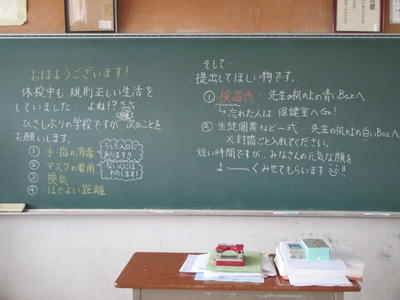 おはようございます!
休校中も規則正しい生活を
していました よね!?
ひさしぶりの学校ですが、次のことを
お願いします。
① 手・指の消毒
② マスクの着用
③ 換気
④ ほどよい距離
うしろ入口に
あります
ない人には
わたします!
そして…
提出してほしい物です。
① 検温表…先生の机の上の青いBoxへ
忘れた人は 保健室へGo!
② 生徒個票など一式…先生の机の上の白いBoxへ
※封筒ごと入れてください。
短い時間ですが、みなさんの元気な顔を
よ〜〜〜くみせてもらいます!!